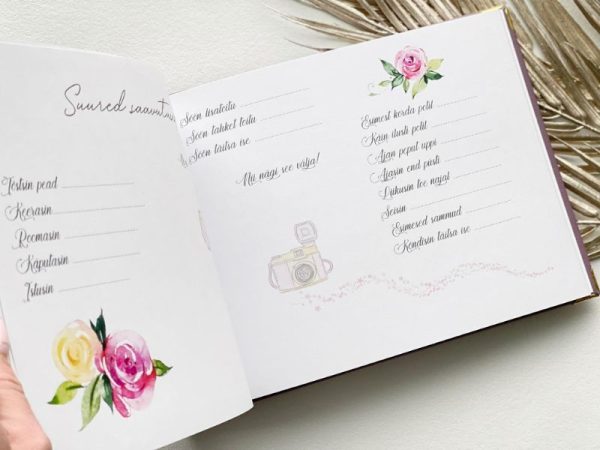 Suured
Tõstsin pead
Keerasin
Roomasin
Käputasin
Istusin
Söön lisatoitu
Söön tahket toitu
Söön täitsa ise
Nii nägi see välja!
Esimest korda potil
Käin ilusti potil
Ajan peput uppi
Ajasin end püsti
Liikusin toe najal
Seisin
Esimesed sammud
Kõndisin täitsa ise